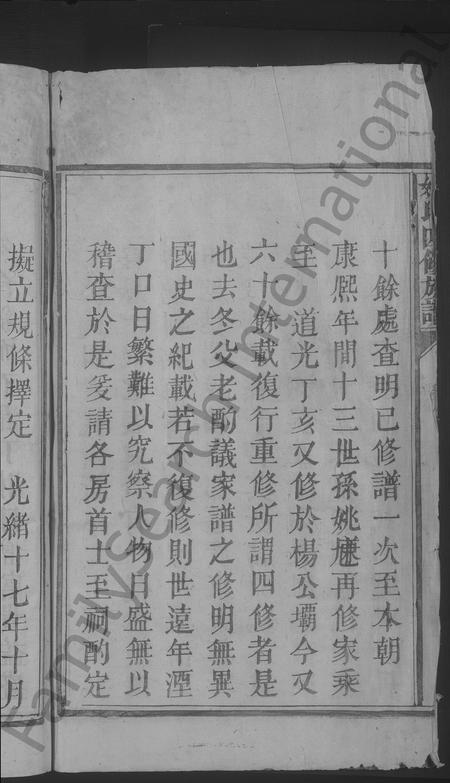 姚氏四修族譜
十餘處查明已修譜一次至本朝
康熙年間十三世孫姚㷂再修家乘
至 道光丁亥又修於楊公壩今又
六十餘載復行重修所謂四修者是
也去冬父老酌議家譜之修明無異
國史之紀載若不復修則世遠年湮
丁口日繁難以究察人物日盛無以
稽查於是爰請各房首士至祠酌定
擬立規條擇定 光緒十七年十月
FamilySearch International